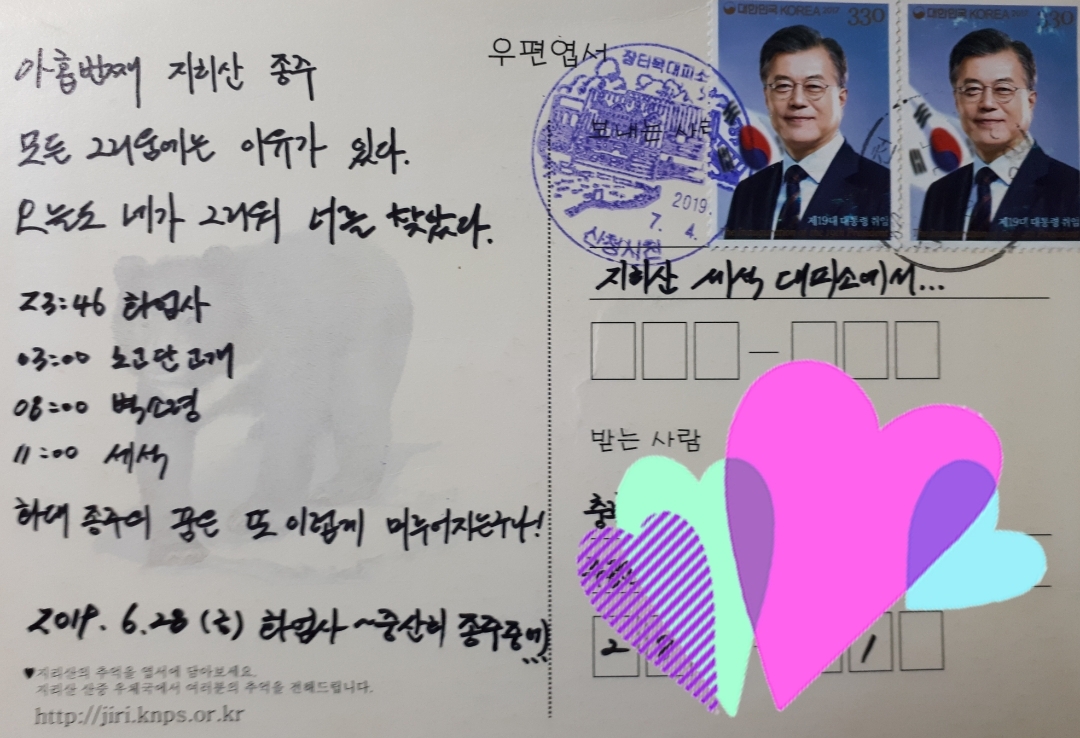 아홉번째 지리산 종주
모든 그리움에는 이유가 있다.
오늘도 네가 그리워 너를 찾았다.
23:46 화엄사
03:00 노고단고개
08:00 벽소령
11:00 세석
화대 종주의 꿈은 또 이렇게 미루어지는구나!
2019. 6. 28 (금) 화엄사 ~ 중산리 종주중에
♥지리산의 추억을 엽서에 담아보세요.
지리산 산중 우체국에서 여러분의 추억을 전해드립니다.
http://jiri.knps.or.kr
우편엽서
보내는 사람
장터목대피소
2019.
7. 4.
산청시천
대한민국 KOREA 2017 330
제19대 대통령 취임
대한민국 KOREA 2017 330
제19대 대통령 취임
지리산 세석 대피소에서...
받는 사람
2
1